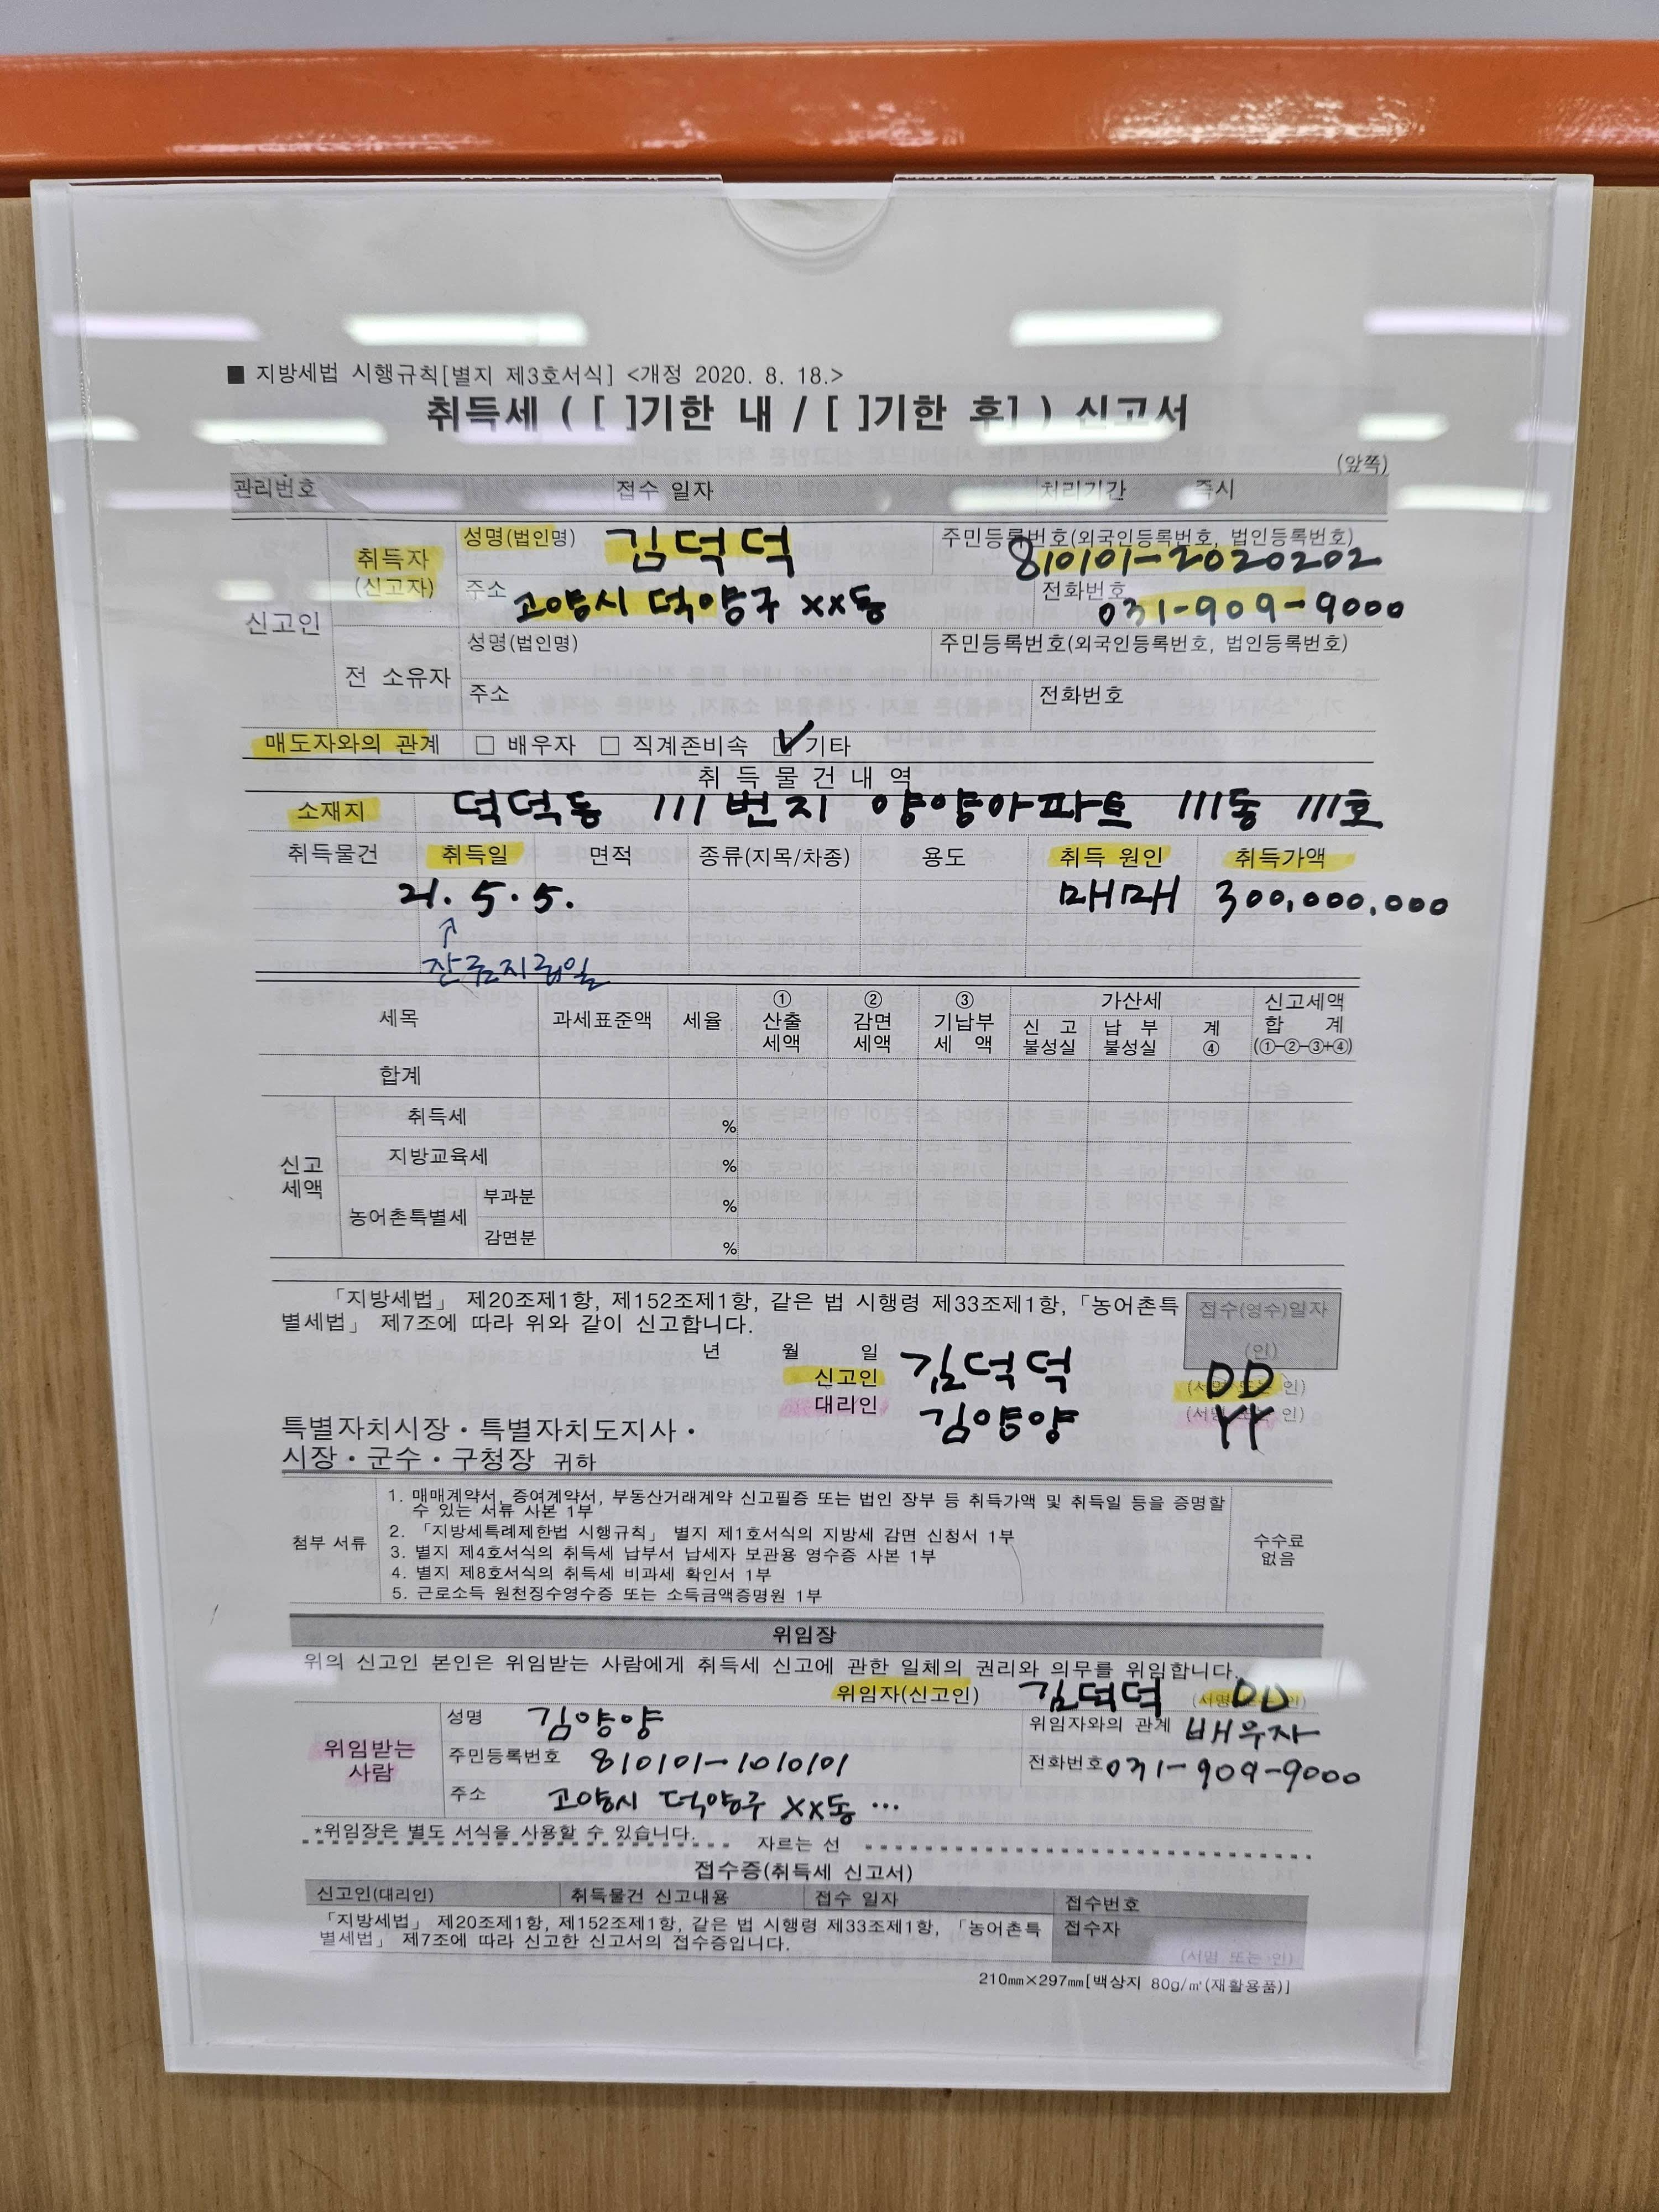 ■ 지방세법 시행규칙[별지 제3호서식] <개정 2020. 8. 18.>
취득세 ( [ ]기한 내 / [ ]기한 후] ) 신고서
(앞쪽)
관리번호 접수 일자 처리기간 즉시
신고인
취득자
(신고자)
성명(법인명) 김덕덕
주민등록번호(외국인등록번호, 법인등록번호)
810101-2020202
주소 고양시 덕양구 xx동
전화번호 031-909-9000
전 소유자
성명(법인명)
주민등록번호(외국인등록번호, 법인등록번호)
주소
전화번호
매도자와의 관계 □ 배우자 □ 직계존비속 ☑ 기타
취 득 물 건 내 역
소재지 덕덕동 111번지 양양아파트 111동 111호
취득물건 취득일 면적 종류(지목/차종) 용도 취득 원인 취득가액
21. 5. 5. 매매 300,000,000
↑
잔금지급일
세목 과세표준액 세율 ① 산출 세액 ② 감면 세액 ③ 기납부 세 액 가산세 신 고 불성실 납 부 불성실 계 ④ 신고세액 합 계 (①-②-③+④)
합계
신고
세액
취득세 %
지방교육세 %
농어촌특별세
부과분 %
감면분 %
「지방세법」 제20조제1항, 제152조제1항, 같은 법 시행령 제33조제1항,「농어촌특
별세법」 제7조에 따라 위와 같이 신고합니다.
접수(영수)일자
(인)
년 월 일
신고인 김덕덕 DD (서명 또는 인)
대리인 김양양 YY (서명 또는 인)
특별자치시장·특별자치도지사·
시장·군수·구청장 귀하
첨부 서류
1. 매매계약서, 증여계약서, 부동산거래계약 신고필증 또는 법인 장부 등 취득가액 및 취득일 등을 증명할
수 있는 서류 사본 1부
2. 「지방세특례제한법 시행규칙」 별지 제1호서식의 지방세 감면 신청서 1부
3. 별지 제4호서식의 취득세 납부서 납세자 보관용 영수증 사본 1부
4. 별지 제8호서식의 취득세 비과세 확인서 1부
5. 근로소득 원천징수영수증 또는 소득금액증명원 1부
수수료
없음
위임장
위의 신고인 본인은 위임받는 사람에게 취득세 신고에 관한 일체의 권리와 의무를 위임합니다.
위임자(신고인) 김덕덕 DD (서명 또는 인)
위임받는
사람
성명 김양양
위임자와의 관계 배우자
주민등록번호 810101-1010101
전화번호 031-909-9000
주소 고양시 덕양구 xx동 ...
*위임장은 별도 서식을 사용할 수 있습니다.
자르는 선
접수증(취득세 신고서)
신고인(대리인) 취득물건 신고내용 접수 일자 접수번호
「지방세법」 제20조제1항, 제152조제1항, 같은 법 시행령 제33조제1항, 「농어촌특
별세법」 제7조에 따라 신고한 신고서의 접수증입니다.
접수자
(서명 또는 인)
210㎜×297㎜[백상지 80g/㎡(재활용품)]